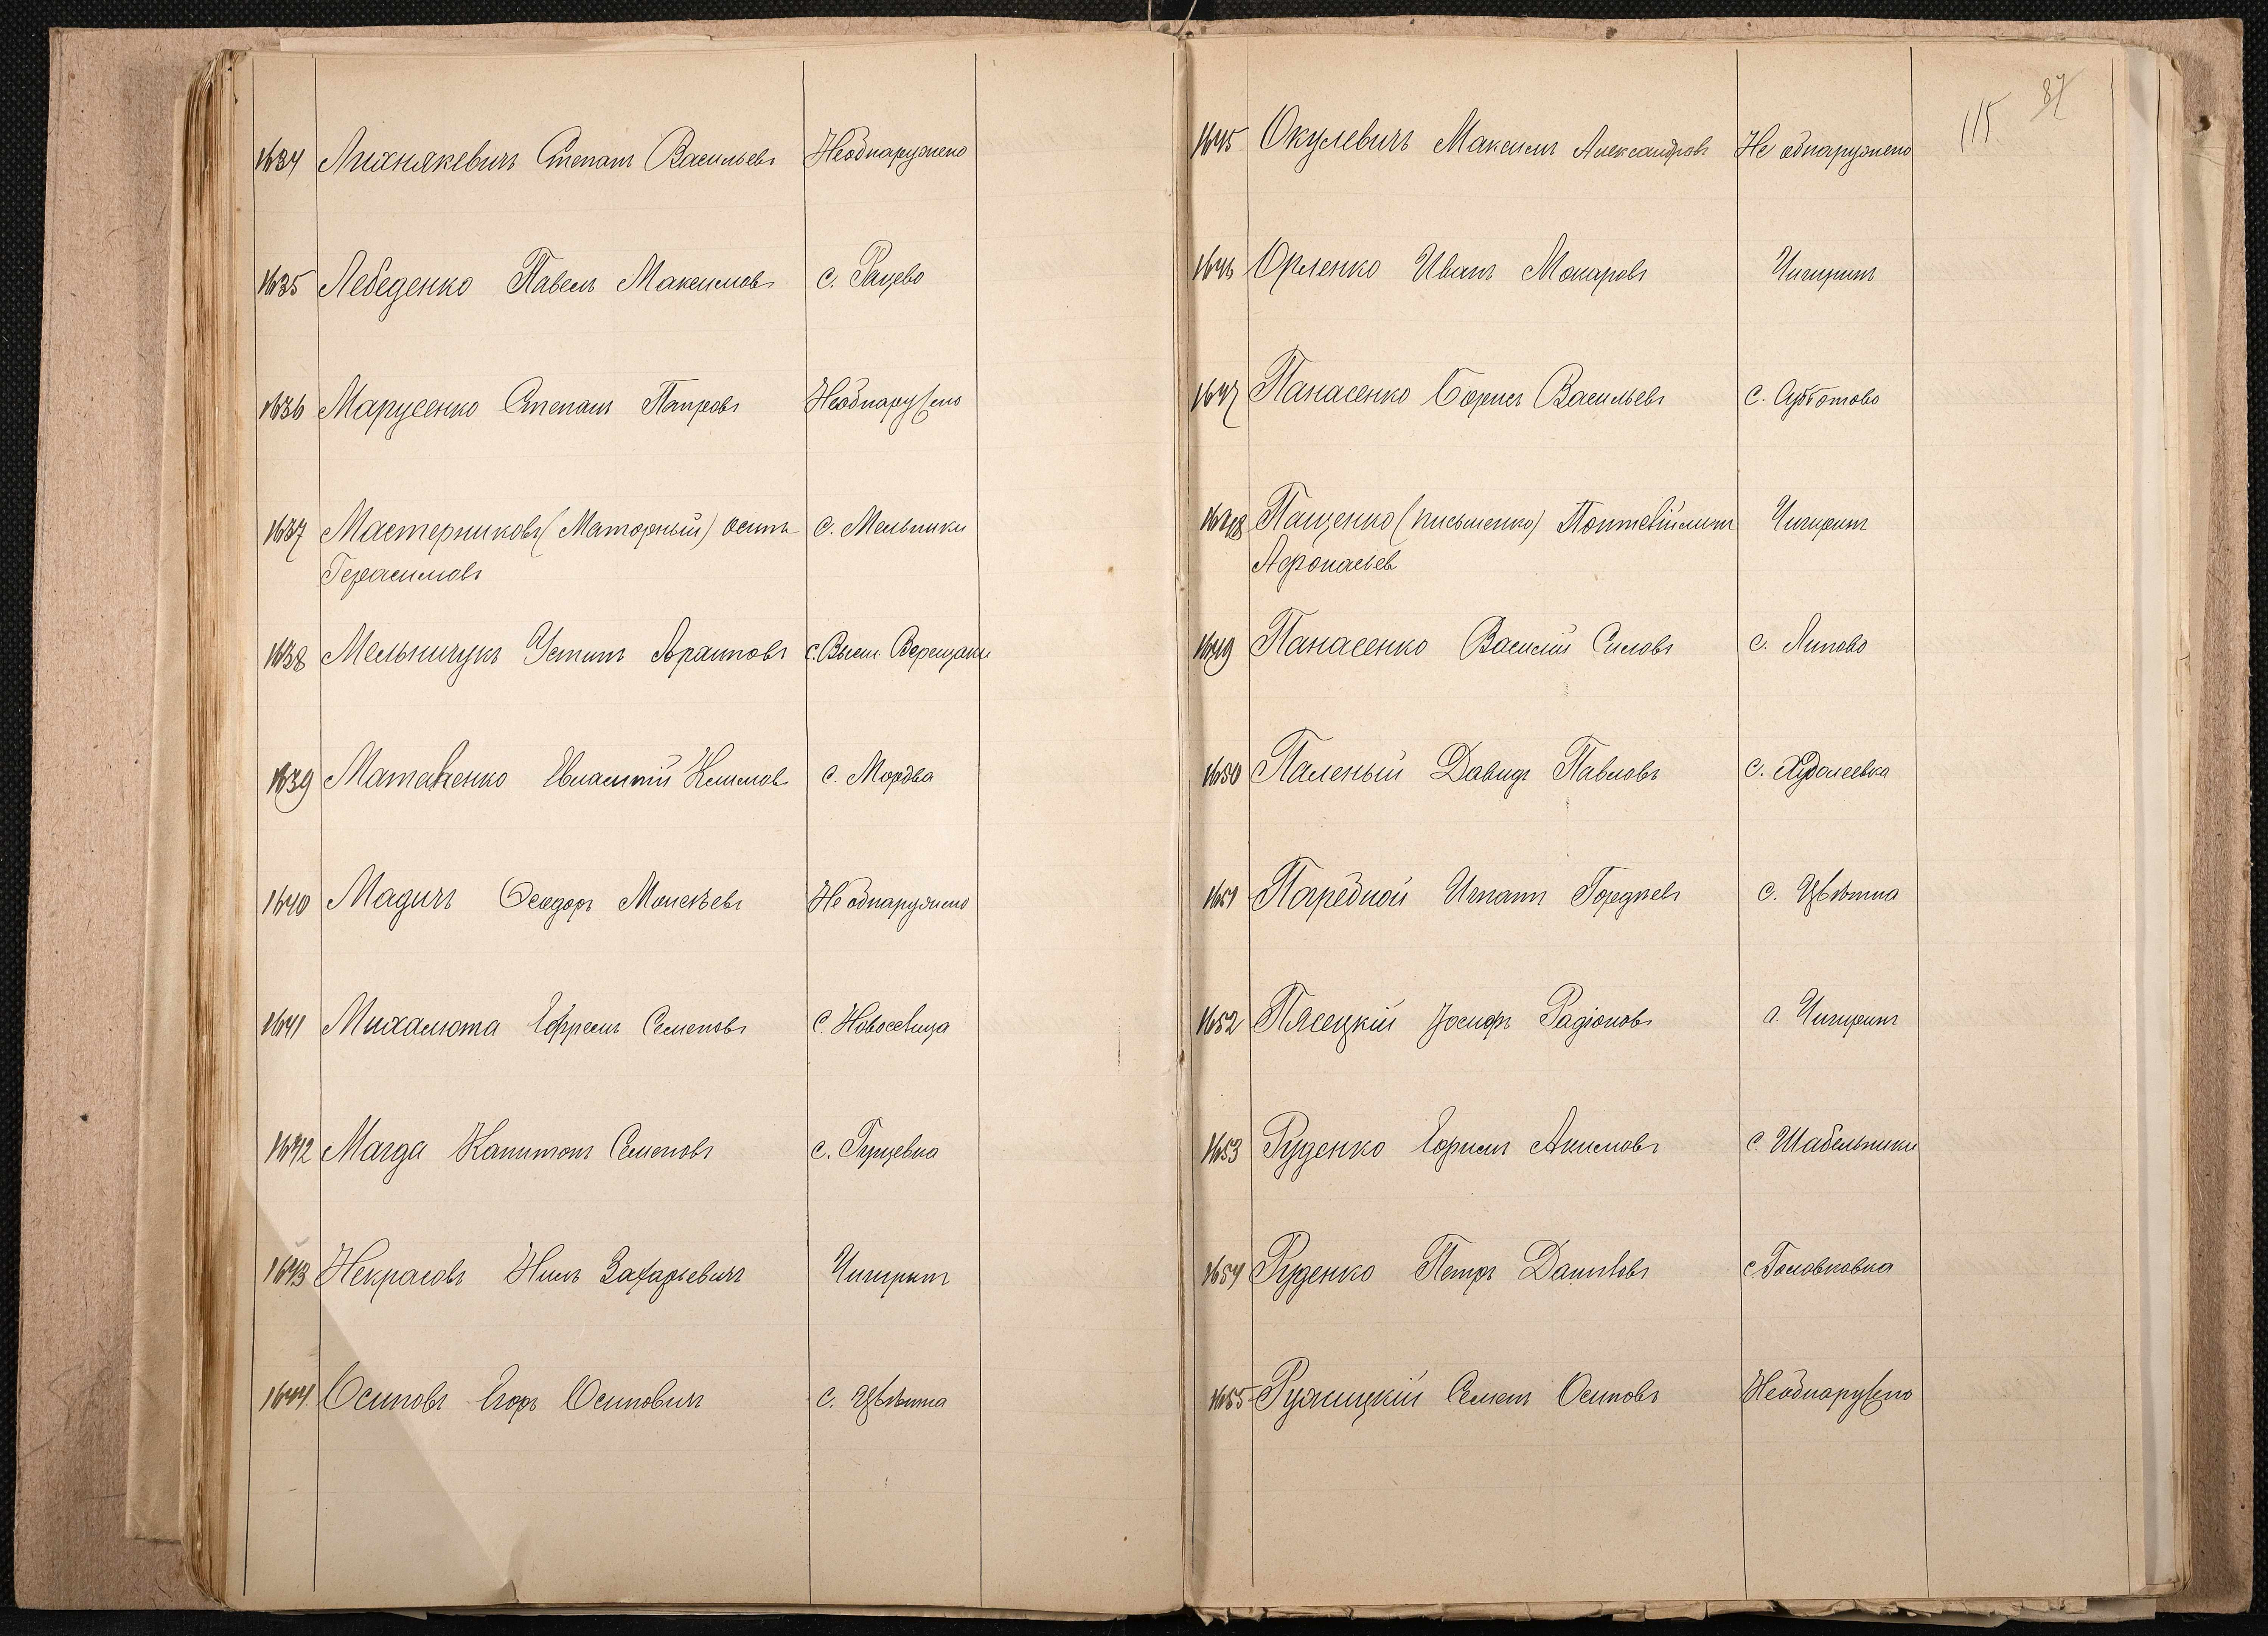 1634 Лихнякевичъ Степанъ Васильевъ Необнаружено
1635 Лебеденко Павелъ Максимовъ с. Рацево
1636 Марусенко Степанъ Петровъ Необнаружено
1637 Мастерниковъ (Маторный) Осипъ с. Мельники
Герасимовъ
1638 Мельничукъ Устинъ Архиповъ с. Высш. Верещаки
1639 Матвѣенко Климовъ с. Мордва
1640 Мадичъ Феодоръ Моисѣевъ Не обнаружено
1641 Михалюта Ефремъ Семеновъ с. Новоселица
1642 Магда Капитонъ Семеновъ с. Гущевка
1643 Некрасовъ Нилъ Захарьевичъ Чигиринъ
1644 Осиповъ Егоръ Осиповичъ с. Цвѣтна
115 87
1645 Окулевичъ Максимъ Александровъ Не обнаружено
1646 Орленко Иванъ Макаровъ Чигиринъ
1647 Панасенко Борисъ Васильевъ с. Субботово
1648 Пащенко (письменко) Чигиринъ
Афонасьев
1649 Панасенко Василій Силовъ с. Липово
1650 Паленый Давидъ Павловъ с. Худолеевка
1651 Погрёбной Игнатъ Гордѣевъ с. Цвѣтна
1652 Плсецкій Іосифъ Радіоновъ г. Чигиринъ
1653 Руденко Ефимъ Акимовъ с. Шабельники
1654 Руденко Петръ Даниловъ с. Головковка
1655 Ружицкій Семенъ Осиповъ Необнаружено